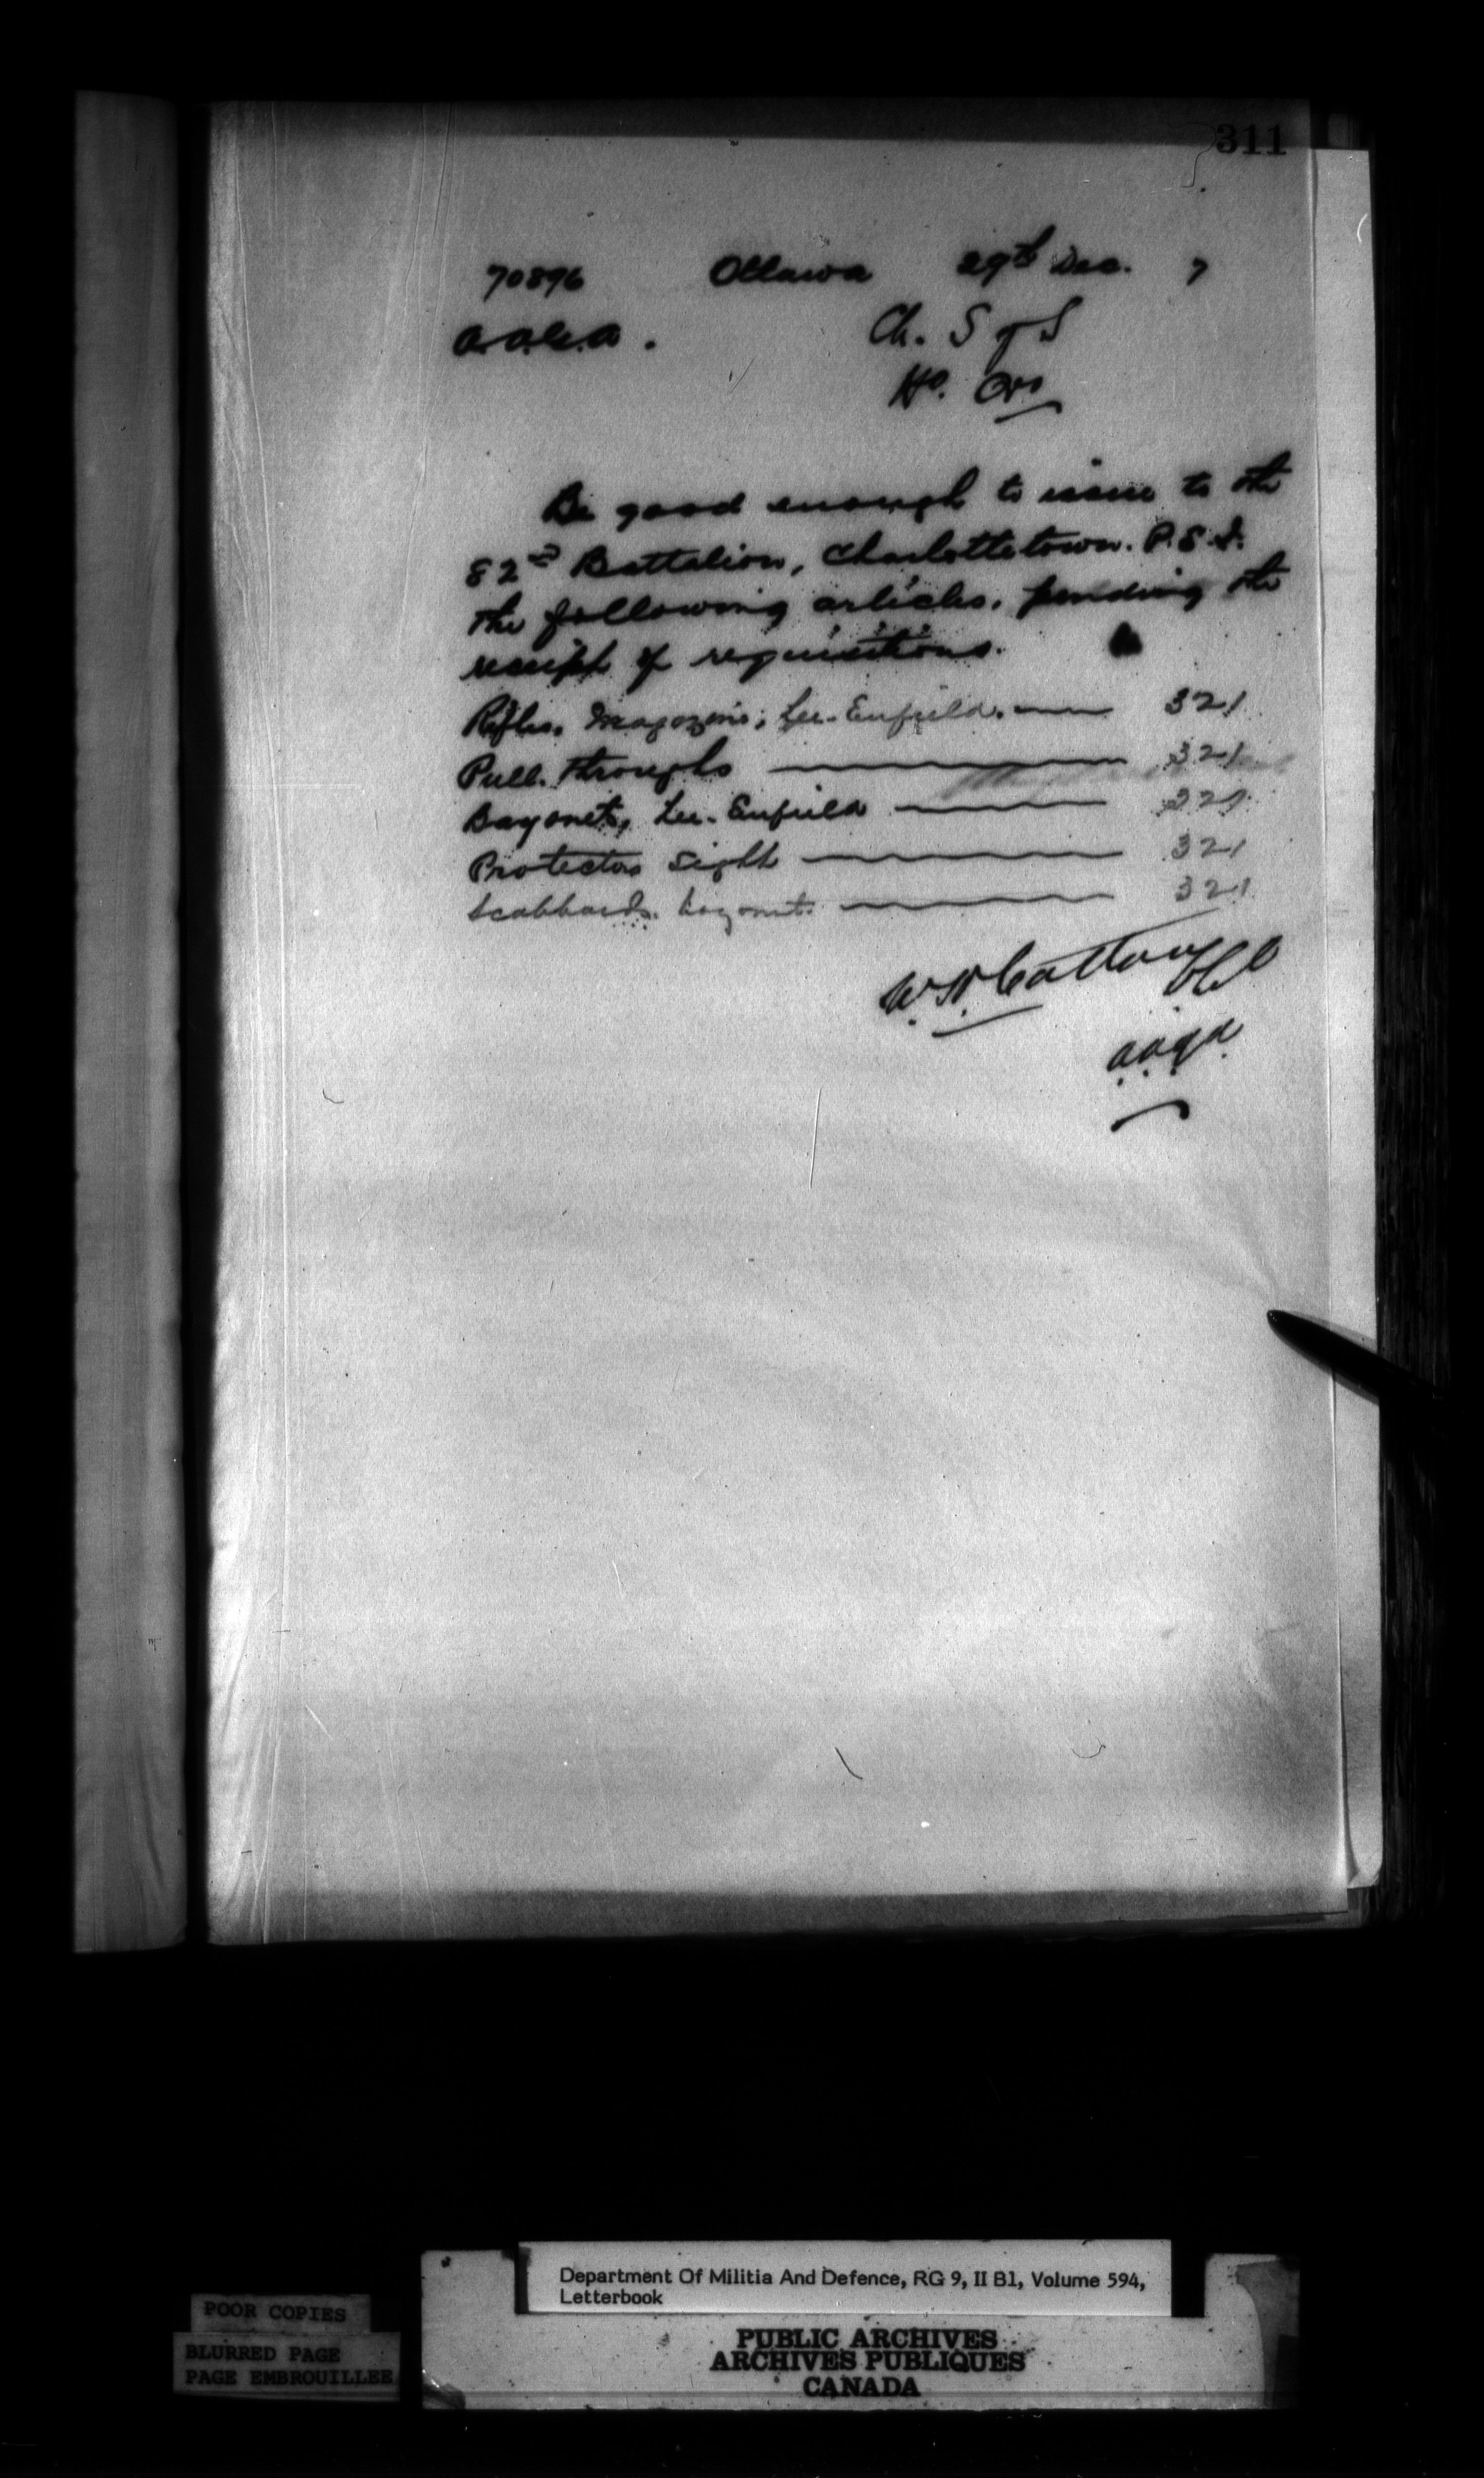 311
70896 Ottawa 29th Dec. 7
A.A.G.A.
Ch. S of S
Hd. Qrs
Be good enough to issue to the
82nd Battalion, Charlottetown. P.E.I.
the following articles, pending the
receipt of requisitions.
Rifles, Magazine, Lee-Enfield. — 321
Pull-throughs — 321
Bayonets, Lee-Enfield — 321
Protectors Sight — 321
Scabbards, bayonet. — 321
W.H. Cotton
A.A.G.A.
Department Of Militia And Defence, RG 9, II B1, Volume 594,
Letterbook
POOR COPIES
BLURRED PAGE
PAGE EMBROUILLEE
PUBLIC ARCHIVES
ARCHIVES PUBLIQUES
CANADA